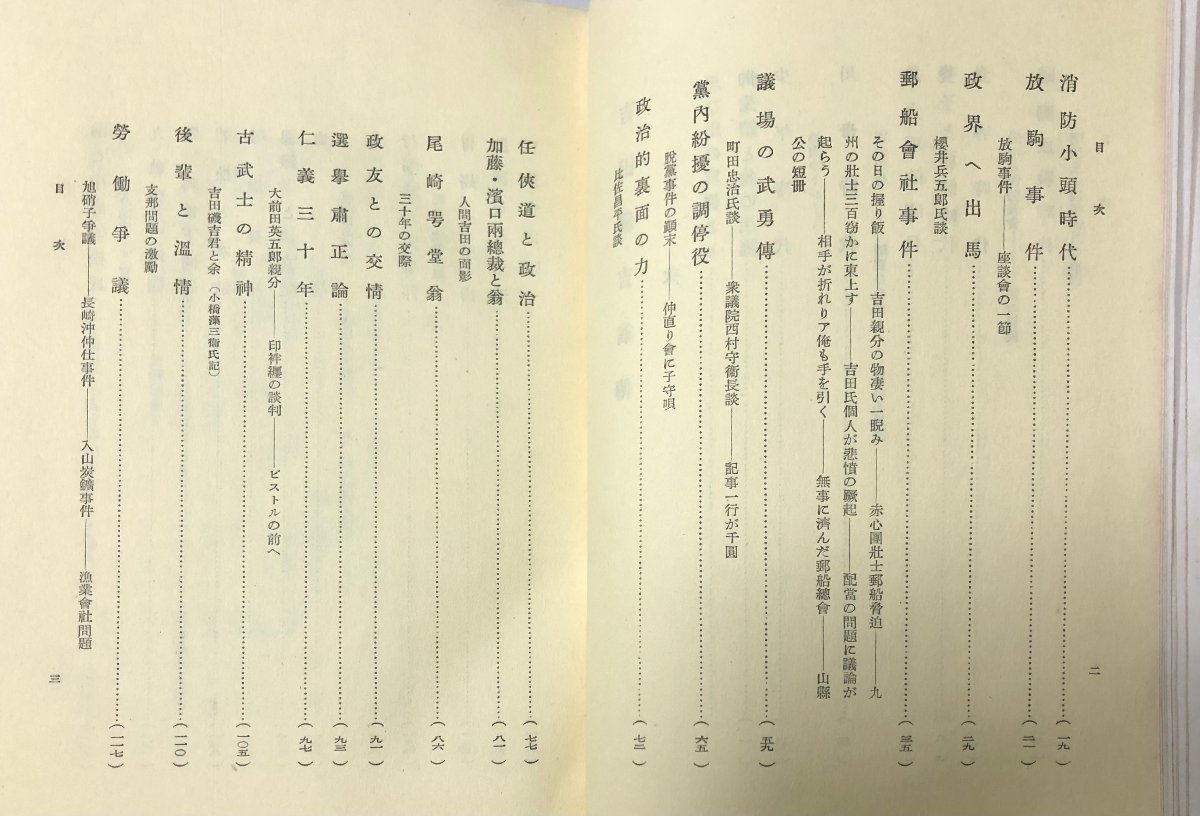 目次
二
消防小頭時代……(一九)
放駒事件……(二一)
放駒事件――座談會の一節
政界へ出馬……(二九)
櫻井兵五郎氏談
郵船會社事件……(三五)
その日の握り飯――吉田親分の物凄い一睨み――赤心團壯士郵船脅迫――九
州の壯士三百窃かに東上す――吉田氏個人が悲憤の蹶起――配當の問題に議論が
起らう――相手が折れリア俺も手を引く――無事に濟んだ郵船總會――山縣
公の短冊
議場の武勇傳……(五九)
町田忠治氏談――衆議院西村守衞長談――記事一行が千圓
黨内紛擾の調停役……(六五)
脫黨事件の顚末 仲直り會に子守唄
政治的裏面の力……(七二)
比佐昌平氏談
任俠道と政治……(七七)
加藤・濱口兩總裁と翁……(八一)
人間吉田の面影
尾崎咢堂翁……(八六)
三十年の交際
政友との交情……(九一)
選擧肅正論……(九三)
仁義三十年……(九七)
大前田英五郎親分――印袢纏の談判――ピストルの前へ
古武士の精神……(一〇五)
吉田磯吉君と余(小橋藻三衞氏記)
後輩と溫情……(一一〇)
支那問題の激勵
勞働爭議……(一一七)
旭硝子爭議――長崎沖仲仕事件――入山炭鑛事件――漁業會社問題
目次
三